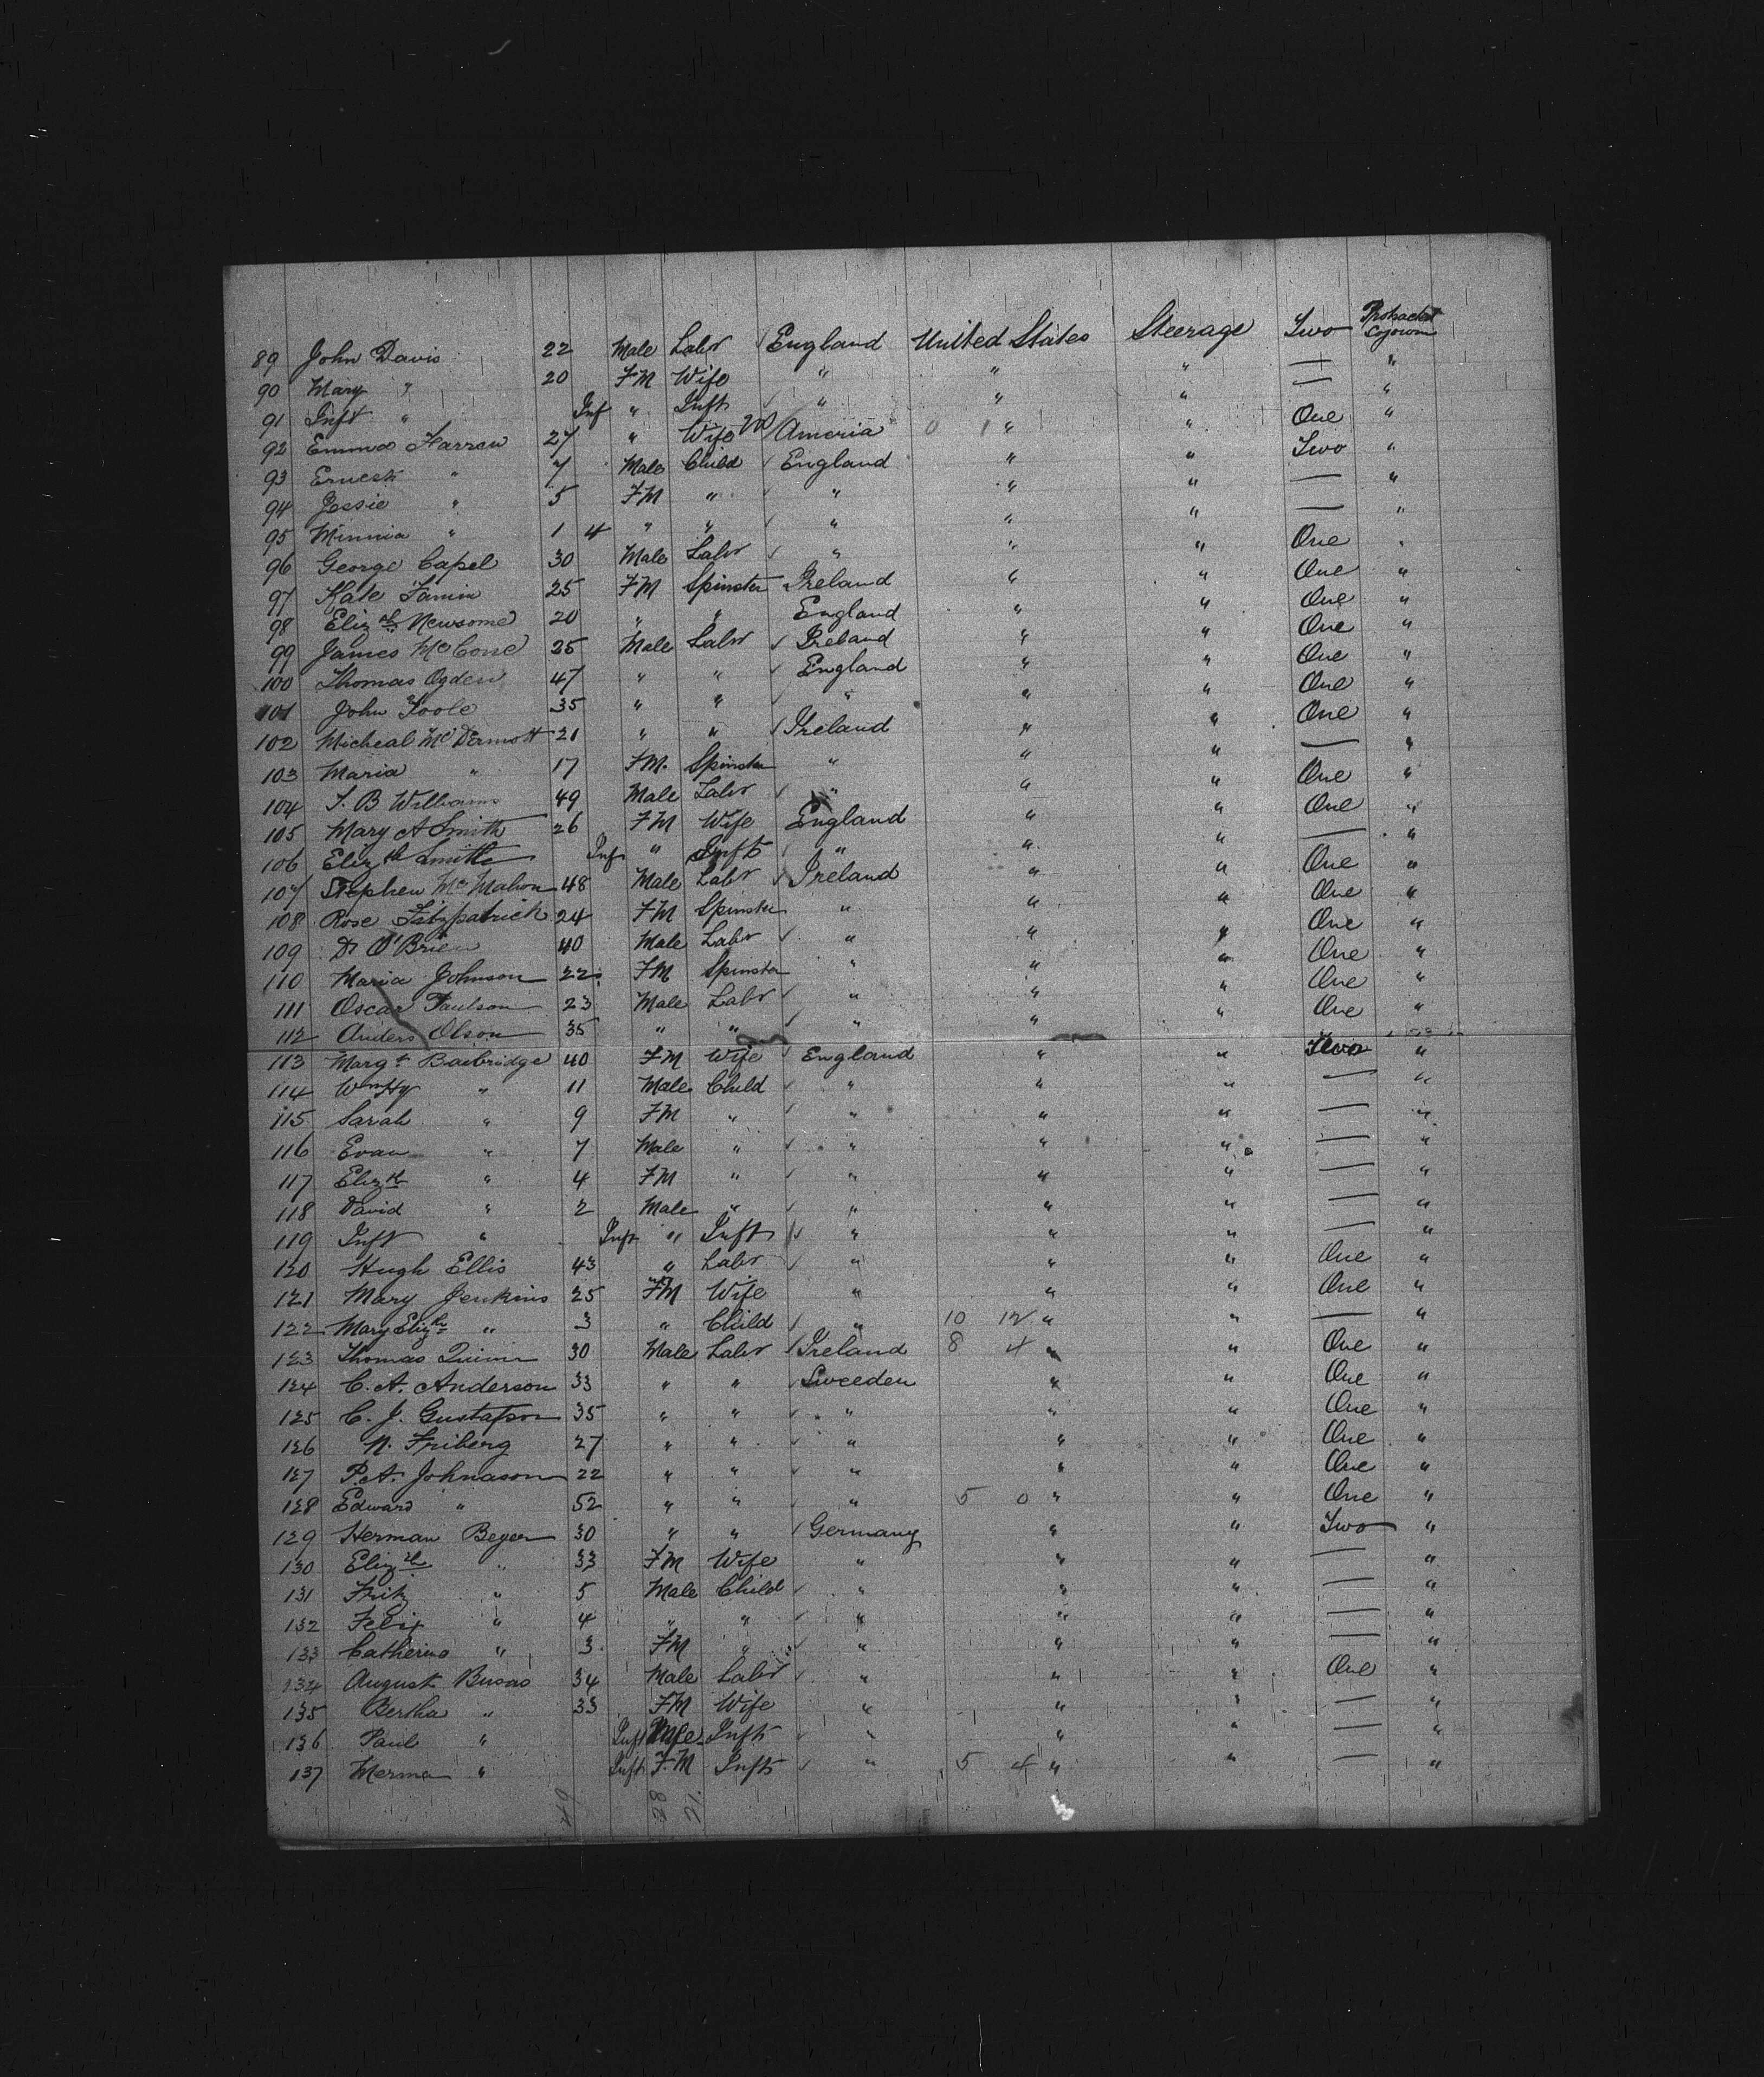 89 John Davis 22 Male Labr England United States Steerage Two Protracted Sojourn
90 Mary " 20 FM Wife " " " — "
91 Inft " Inf " Inft " " " — "
92 Emma Farrow 27 " Wife W America 0 1 " " One "
93 Ernest " 7 Male Child England " " Two "
94 Jessie " 5 FM " " " " — "
95 Minnia " 1 4 " " " " " — "
96 George Capel 30 Male Labr " " " One "
97 Kate 25 FM Spinster Ireland " " One "
98 Elizth Newsome 20 " " England " " One "
99 James McCone 25 Male Labr Ireland " " One "
100 Thomas Ogden 47 " " England " " One "
101 John Toole 35 " " " " " One "
102 Micheal McDermott 21 " " Ireland " " One "
103 Maria " 17 FM. Spinster " " " — "
104 T. B Williams 49 Male Labr " " " One "
105 Mary A Smith 26 FM Wife England " " One "
106 Elizth Smith Inf " Inft " " " — "
107 Stephen McMahon 48 Male Labr Ireland " " One "
108 Rose Fitzpatrick 24 FM Spinster " " " One "
109 D. O'Brien 40 Male Labr " " " One "
110 Maria Johnson 22 FM Spinster " " " One "
111 Oscar Paulson 23 Male Labr " " " One "
112 Anders Olson 35 " " " " " One "
113 Margt Baebridge 40 FM Wife England " " Two "
114 Wm Hy " 11 Male Child " " " — "
115 Sarah " 9 FM " " " " — "
116 Evan " 7 Male " " " " — "
117 Elizth " 4 FM " " " " — "
118 David " 2 Male " " " " — "
119 Inft " Inft " Inft " " " — "
120 Hugh Ellis 43 " Labr " " " One "
121 Mary Jenkins 25 FM Wife " " " One "
122 Mary Elizth " 3 " Child " 10 12 " " — "
123 Thomas Quinn 30 Male Labr Ireland 8 4 " " One "
124 C. A. Anderson 33 " " Sweeden " " One "
125 C. J. Gustafson 35 " " " " " One "
126 N. Friberg 27 " " " " " One "
127 P.A. Johnason 22 " " " " " One "
128 Edward " 52 " " " 5 0 " " One "
129 Herman Beyer 30 " " Germany " " Two "
130 Elizth " 33 FM Wife " " " — "
131 Fritz " 5 Male Child " " " — "
132 Felix " 4 " " " " " — "
133 Catherina " 3 FM " " " " — "
134 August Busas 34 Male Labr " " " One "
135 Bertha " 33 FM Wife " " " — "
136 Paul " Inft Male Inft " " " — "
137 Merma " Inft F.M Inft " 5 4 " " — "
49 28 21